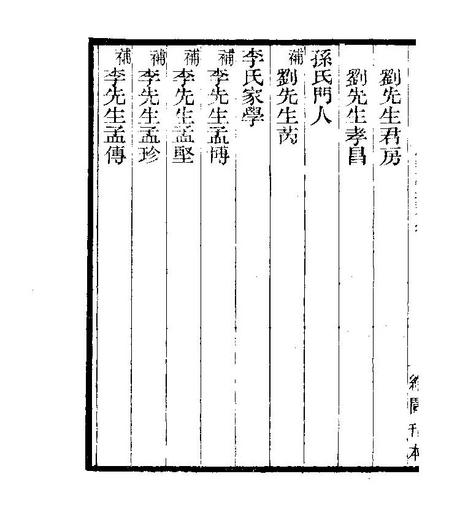 劉先生君房
劉先生孝昌
孫氏門人
補劉先生芮
李氏家學
補李先生孟博
補李先生孟堅
補李先生孟珍
補李先生孟傳